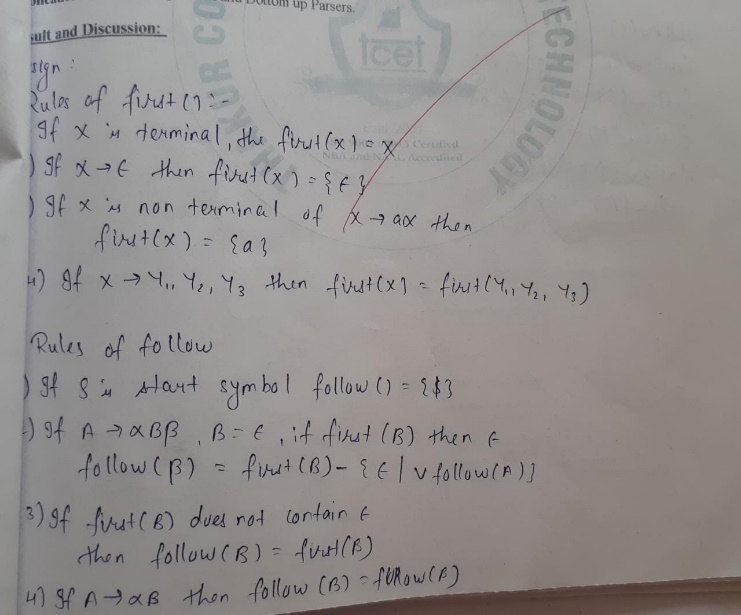 Bottom up Parsers.
sult and Discussion:
sign:
Rules of first():-
If x is terminal, the first(x) = x
) If x → ϵ then first(x) = {ϵ}
) If x is non terminal of x → aα then
first(x) = {a}
4) If x → Y1, Y2, Y3 then first(x) = first(Y1, Y2, Y3)
Rules of follow
) If S is start symbol follow() = {$}
) If A → αBβ, B = ϵ, if first (B) then ϵ
follow(β) = first(B) - {ϵ | ∨ follow(A)}
3) If first(B) does not contain ϵ
then follow(B) = first(B)
4) If A → αB then follow (B) = follow(B)
tcet
THAKUR CO
TECHNOLOGY
Certified
Accredited